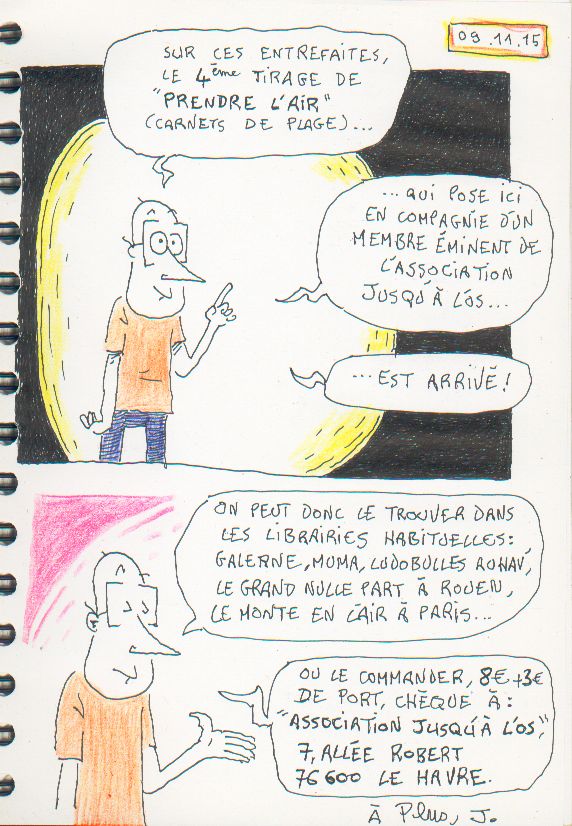 09.11.15
SUR CES ENTREFAITES,
LE 4ème TIRAGE DE
"PRENDRE L'AIR"
(CARNETS DE PLAGE)...
...QUI POSE ICI
EN COMPAGNIE D'UN
MEMBRE ÉMINENT DE
L'ASSOCIATION
JUSQU'À L'OS...
...EST ARRIVÉ!
ON PEUT DONC LE TROUVER DANS
LES LIBRAIRIES HABITUELLES:
GALERNE, MUMA, LUDOBULLES AU HAVÉ,
LE GRAND NULLE PART À ROUEN,
LE MONTE EN L'AIR À PARIS...
OU LE COMMANDER, 8€+3€
DE PORT, CHÈQUE À:
"ASSOCIATION JUSQU'À L'OS",
7, ALLÉE ROBERT
76600 LE HAVRE.
À Plus, J.